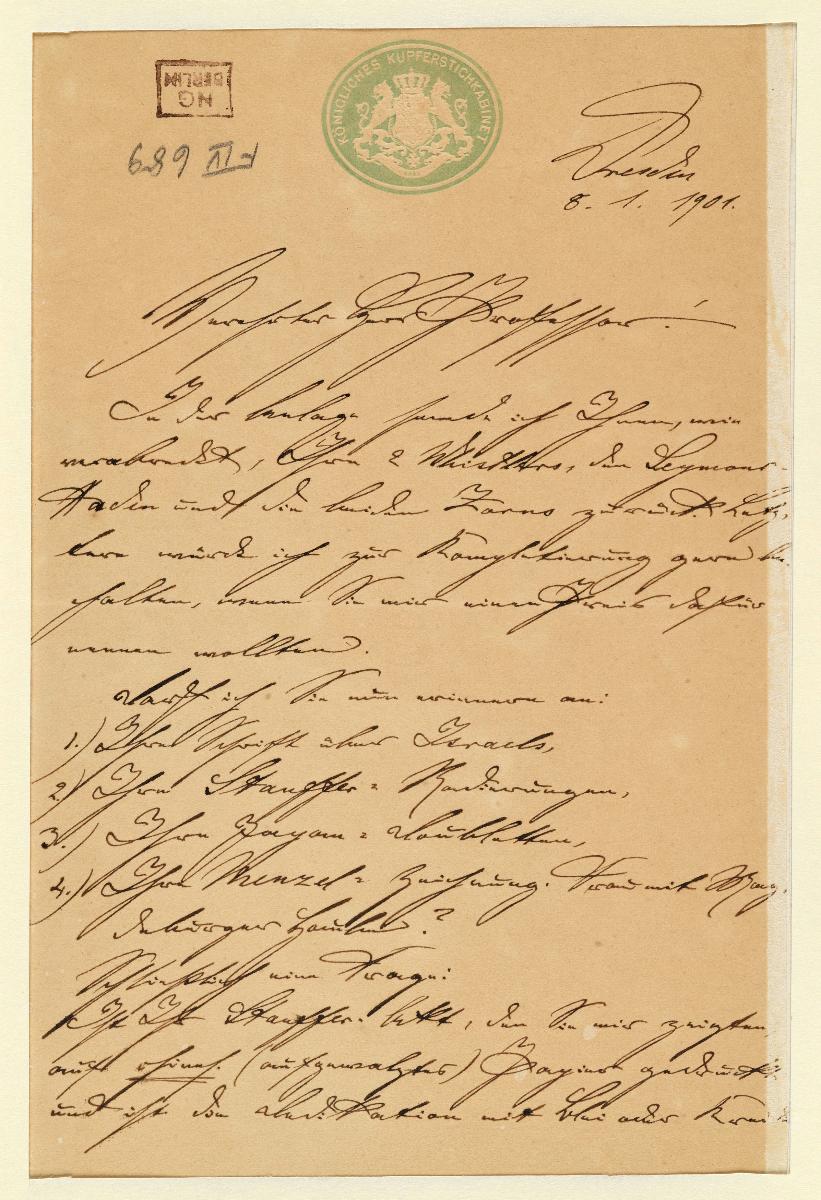 NG
BERLIN
F IV 689
KÖNIGLICHES KUPFERSTICHKABINET
Dresden
8. 1. 1901.
Verehrter Herr Professor!
In der Anlage sende ich Ihnen, wie
verabredet, Ihre 2 Whistlers, den Seymour-
Haden und die beiden Zorns zurück. Letz-
tere würde ich zur Kompletierung gern be-
halten, wenn Sie mir einen Preis dafür
nennen wollten.
Darf ich Sie nun erinnern an:
1.) Ihre Schrift über Israels,
2.) Ihre Stauffer-Radierungen,
3.) Ihre Doubletten,
4.) Ihre Menzel-Zeichnung: Frau mit Mag-
deburger Haube?
Schließlich eine Frage:
Ist Ihr Stauffer-Akt, den Sie mir zeigten,
auf chines. (aufgewalztes) Papier gedruckt
und ist die Dedikation mit Blei oder Kreide